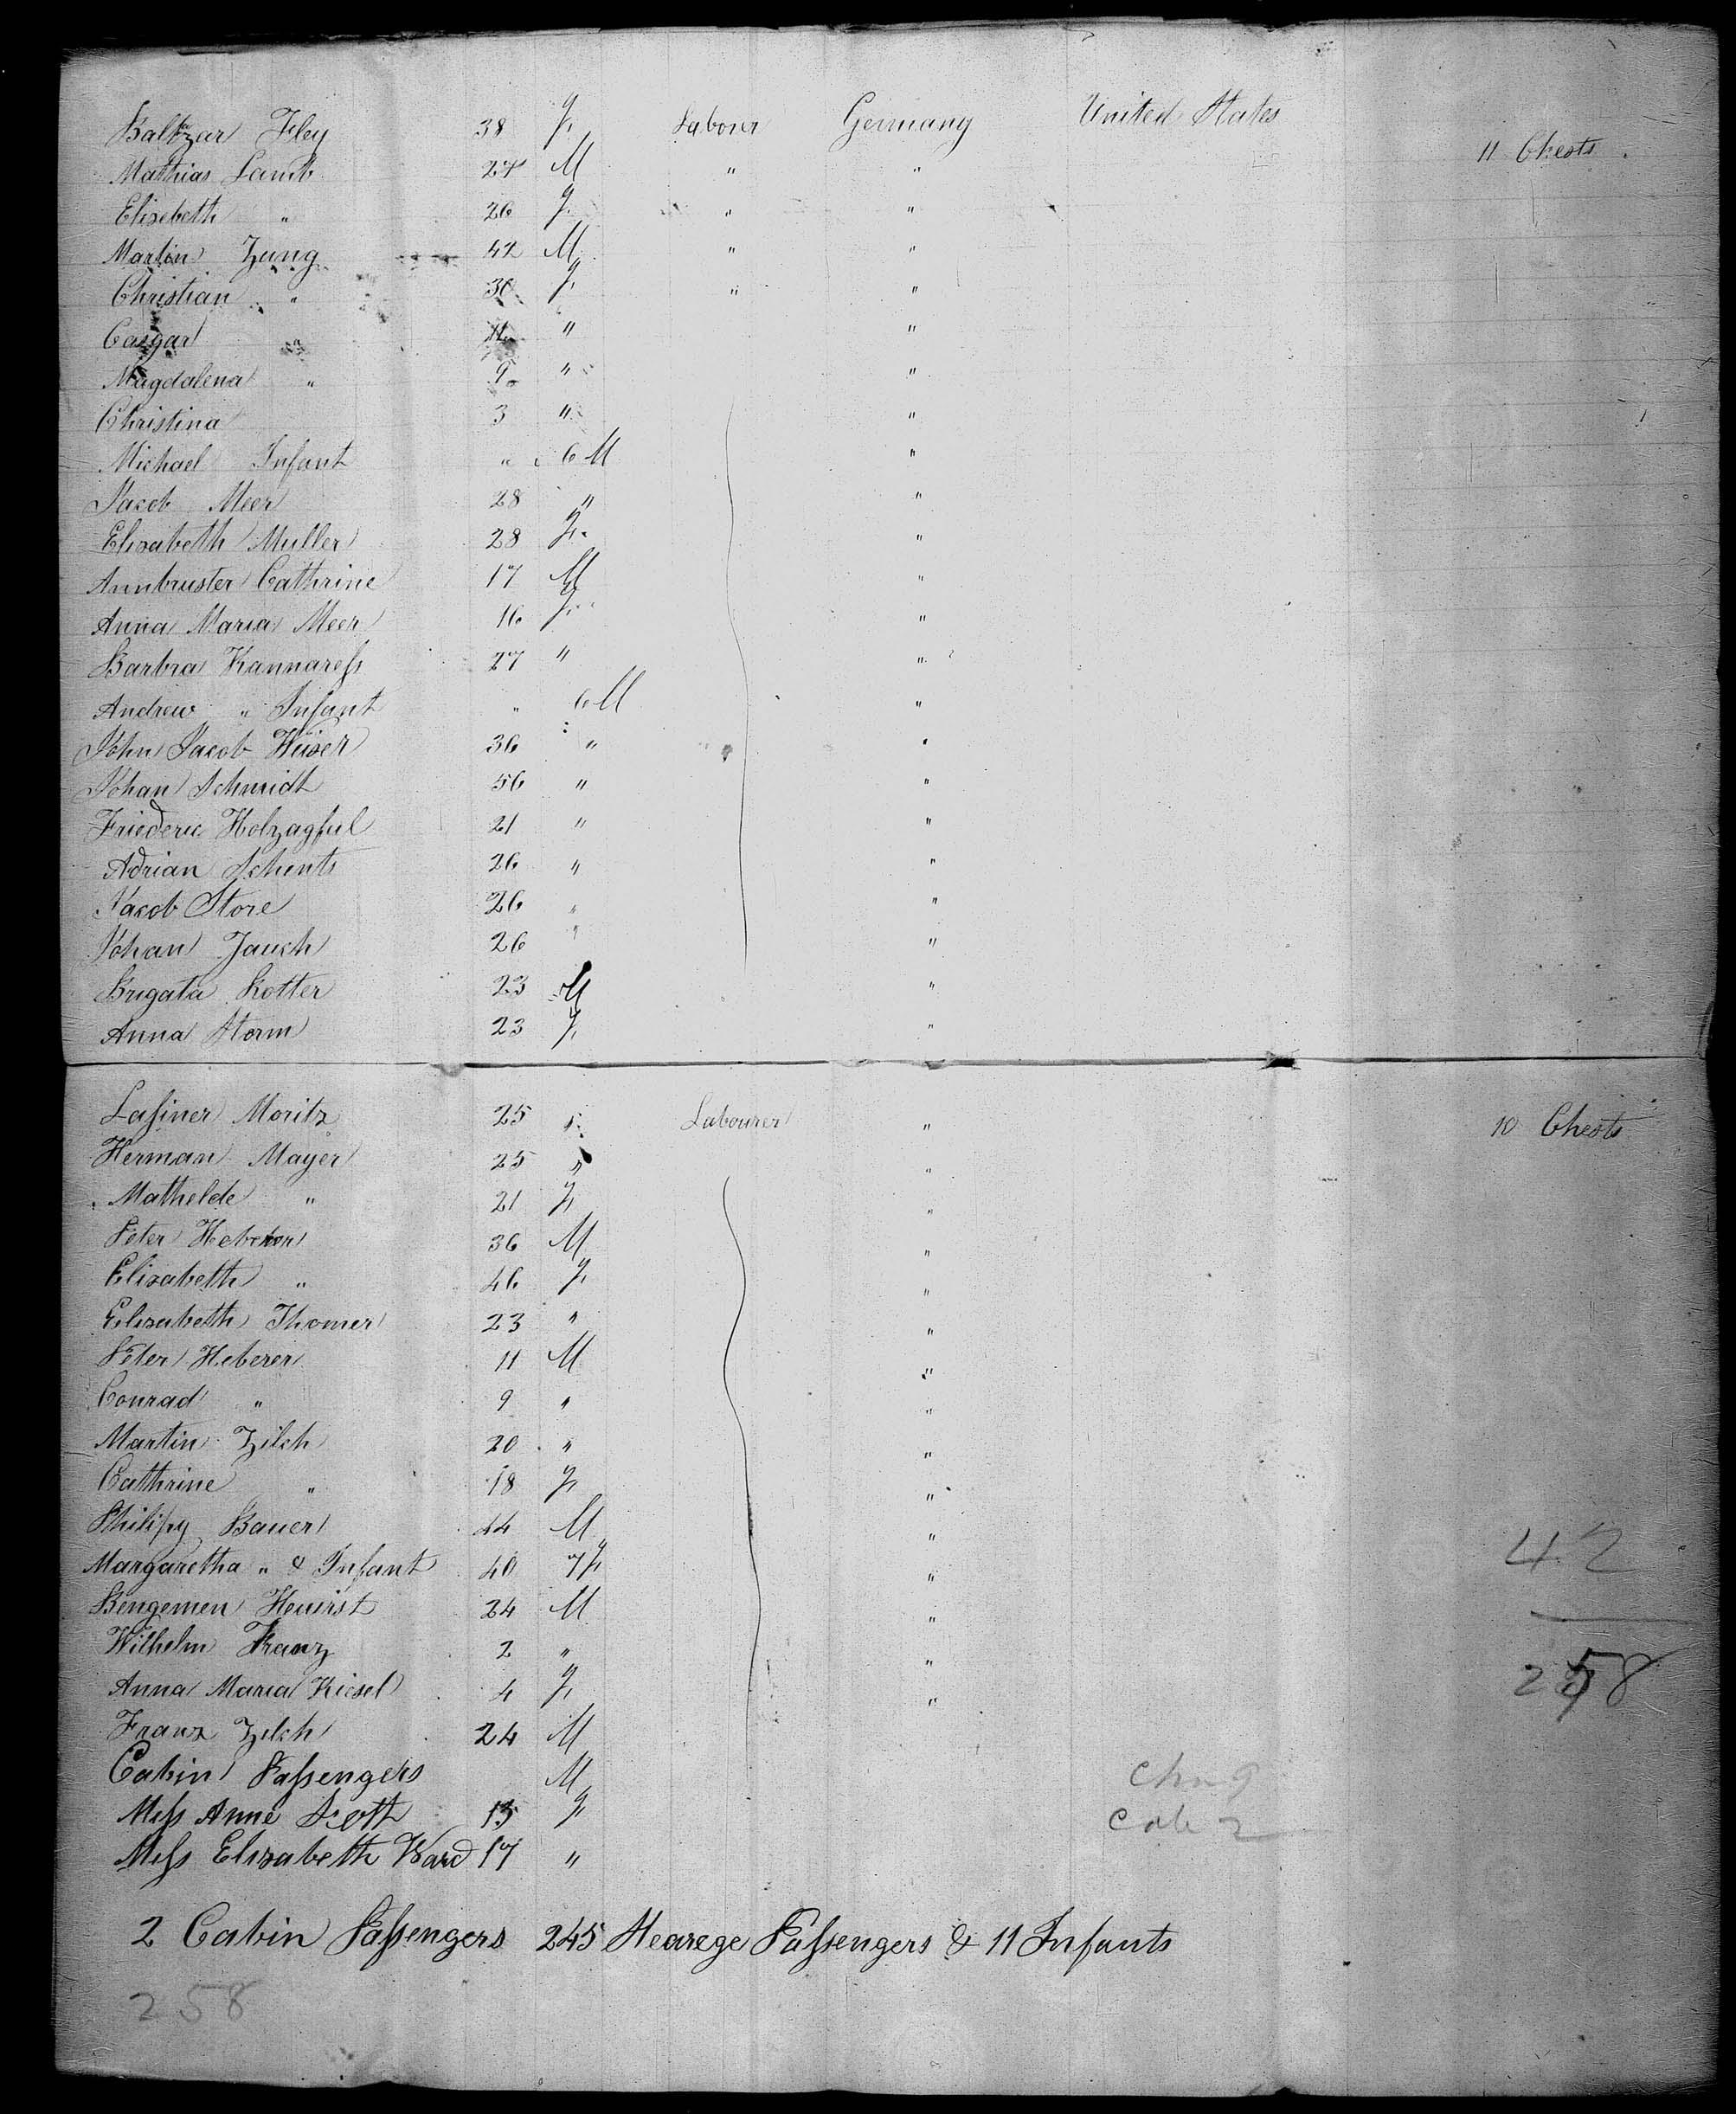 Baltzar Fley 38 F. Labour Germany United States
11 Chests
Mathias Lamb 27 M " "
Elisebeth " 26 F. " "
Martin Zung 42 M " "
Christian " 30 F. " "
Casgar " 11 " "
Magdalena " 9 " "
Christina 3 " "
Michael Infant " 6 M "
Jacob Meer 28 " "
Elisabeth Muller 28 F. "
Armbruster Cathrine 17 M "
Anna Maria Meer 16 F. "
Barbra Kannaress 27 " "
Andrew " Infant " 6 M "
John Jacob Wüser 36 " "
Johan Schmidt 56 " "
Friederic Holzagful 21 " "
Adrian Schents 26 " "
Jacob Store 26 " "
Johan Jauch 26 " "
Brigata Rotter 23 M "
Anna Storm 23 F. "
Lassner Moritz 25 Labourer "
10 Chests
Herman Mayer 25 " "
Mathelde " 21 F. "
Peter Heberer 36 M "
Elisabeth " 46 F. "
Elisabeth Thomer 23 " "
Peter Heberer 11 M "
Conrad " 9 " "
Martin Zilch 20 " "
Cathrine " 18 F. "
Philipy Bauer 44 M "
42
Margaretha " & Infant 40 7 F. "
Bengemen Heuirst 24 M "
Wilhelm Franz 2 " "
258
Anna Maria Kiesel 4 F. "
Franz Zilch 24 M
Cabin Passengers M
Chn 9
Miss Anne Scott 13 F.
Cab 2
Miss Elizabeth Ward 17 "
2 Cabin Passengers 245 Stearege Passengers & 11 Infants
258